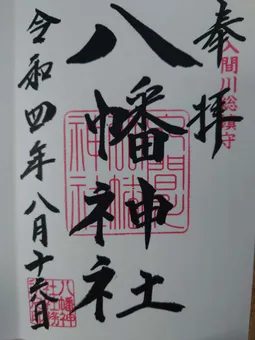 奉拝
入間川総鎮守
八幡神社
令和四年八月十六日